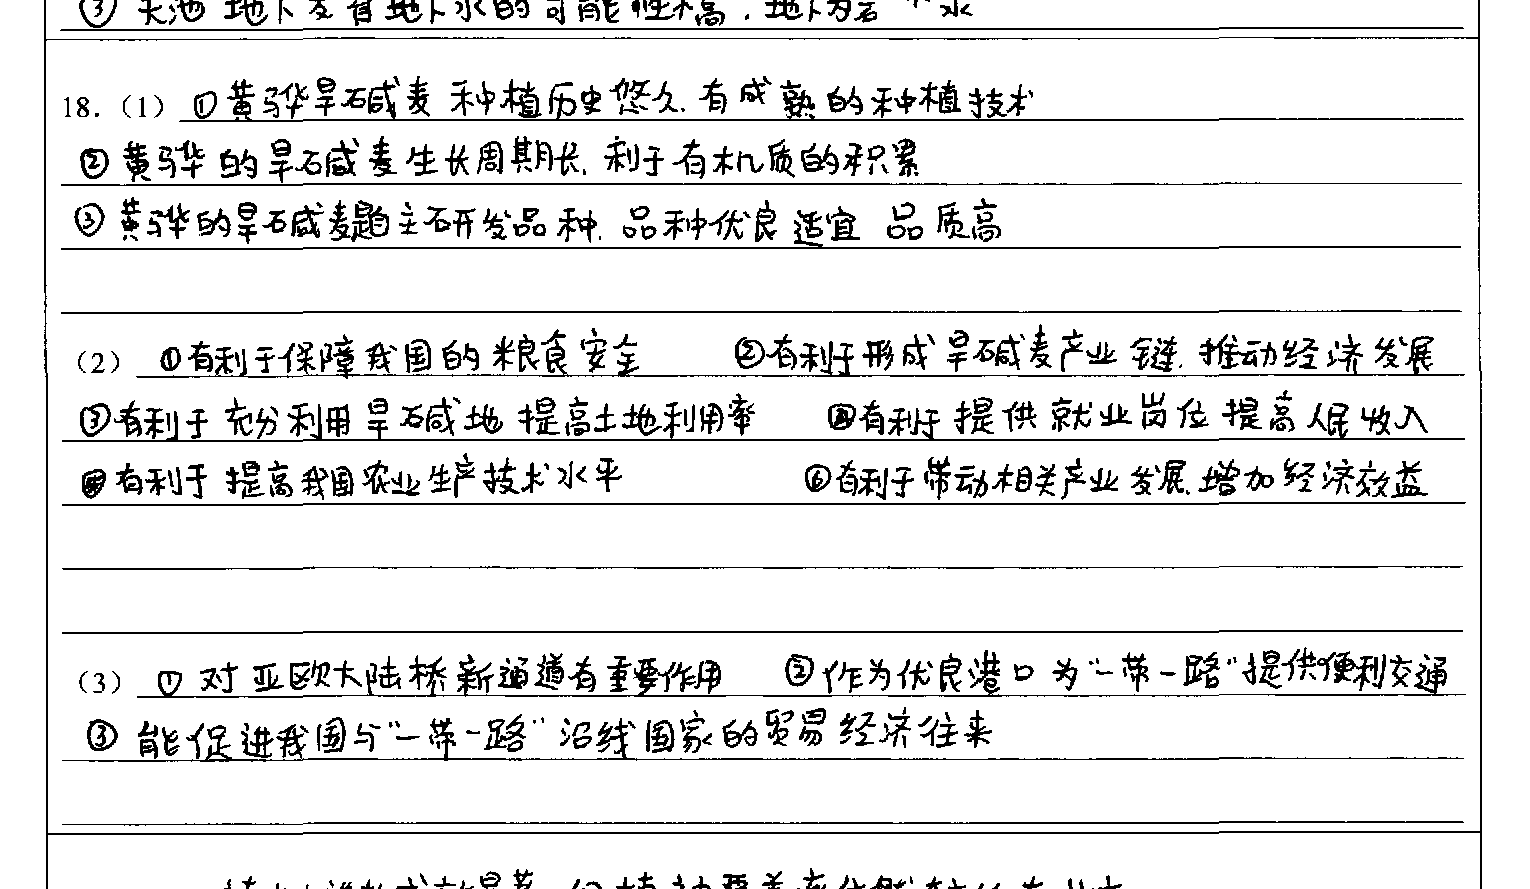 ③天池地下友育地下水的可能性不高,地下为若 水
18.(1)①黄骅旱碱麦种植历史悠久,有成熟的种植技术
②黄骅的旱碱麦生长周期长,利于有机质的积累
③黄骅的旱碱麦自主研发品种,品种优良适宜 品质高
(2)①有利于保障我国的粮食安全 ②有利于形成旱碱麦产业链,推动经济发展
③有利于充分利用旱碱地提高土地利用率 ④有利于提供就业岗位提高人民收入
⑤有利于提高我国农业生产技术水平 ⑥有利于带动相关产业发展,增加经济效益
(3)①对亚欧大陆桥新通道有重要作用 ②作为优良港口为“一带一路”提供便利交通
③能促进我国与“一带一路”沿线国家的贸易经济往来